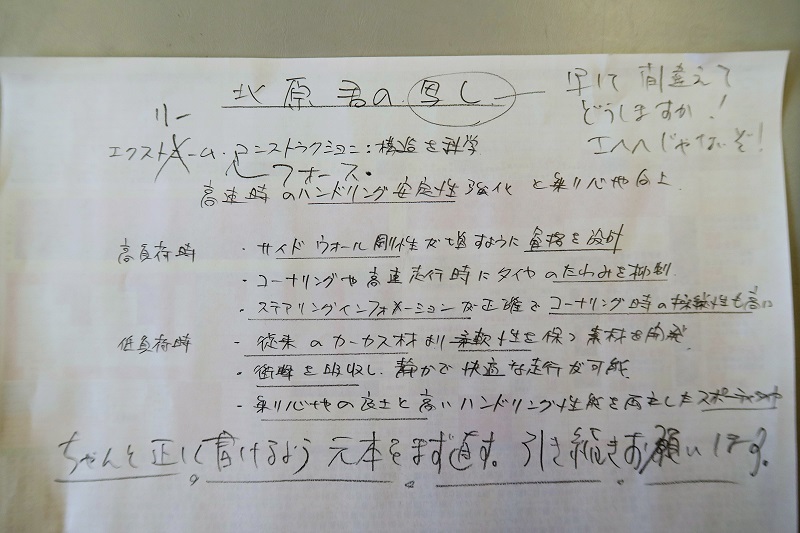 北原君の写し
早くて間違えて
どうしますか!
エヘヘじゃないぞ!
リー
エクストキーム・コンストラクション:構造を科学
フォース・
高速時のハンドリング安定性強化と乗り心地向上
高負荷時 ・サイドウォール剛性が増すように骨格を設計
・コーナリングや高速走行時にタイヤのたわみを抑制
・ステアリングインフォメーションが正確でコーナリング時の操縦性も高い
低負荷時 ・従来のカーカス材より柔軟性を保つ素材を開発
・衝撃を吸収し、静かで快適な走行が可能
・乗り心地の良さと高いハンドリング性能を両立したスポーティタイヤ
ちゃんと正しく書けるよう元本をまず直す。引き続きお願いします。